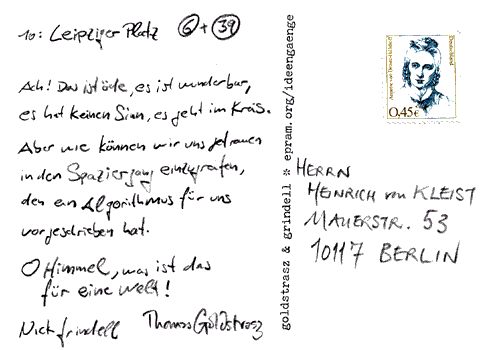 10: Leipziger Platz 6 + 39
Ach! Das ist öde, es ist wunderbar,
es hat keinen Sinn, es geht im Kreis.
Aber wie können wir uns getrauen
in den Spaziergang einzugreifen,
den ein Algorithmus für uns
vorgeschrieben hat.
O Himmel, was ist das
für eine Welt!
Nick Grindell Thomas Goldstrasz
goldstrasz & grindell * epram.org/ideengaenge
Deutschland
0,45€
HERRN
HEINRICH von KLEIST
MAUERSTR. 53
10117 BERLIN